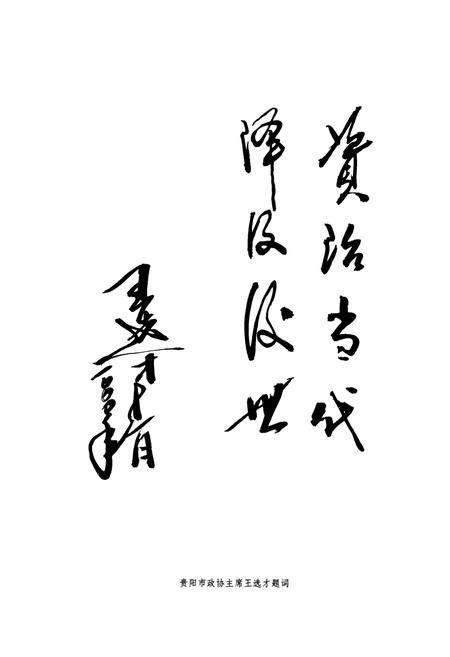 資治当代
泽及後世
王选才
贵阳市政协主席王选才题词